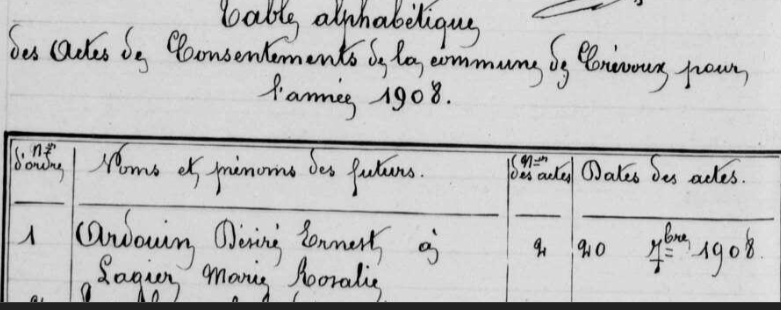 Table alphabétique
des Actes de Consentements de la commune de Trévoux pour
l'année 1908.
Nos d'ordre
Noms et prénoms des futurs.
Nos des actes
Dates des actes.
1 Ardouin Désiré Ernest à 2 20 7bre 1908
Lagier Marie Rosalie